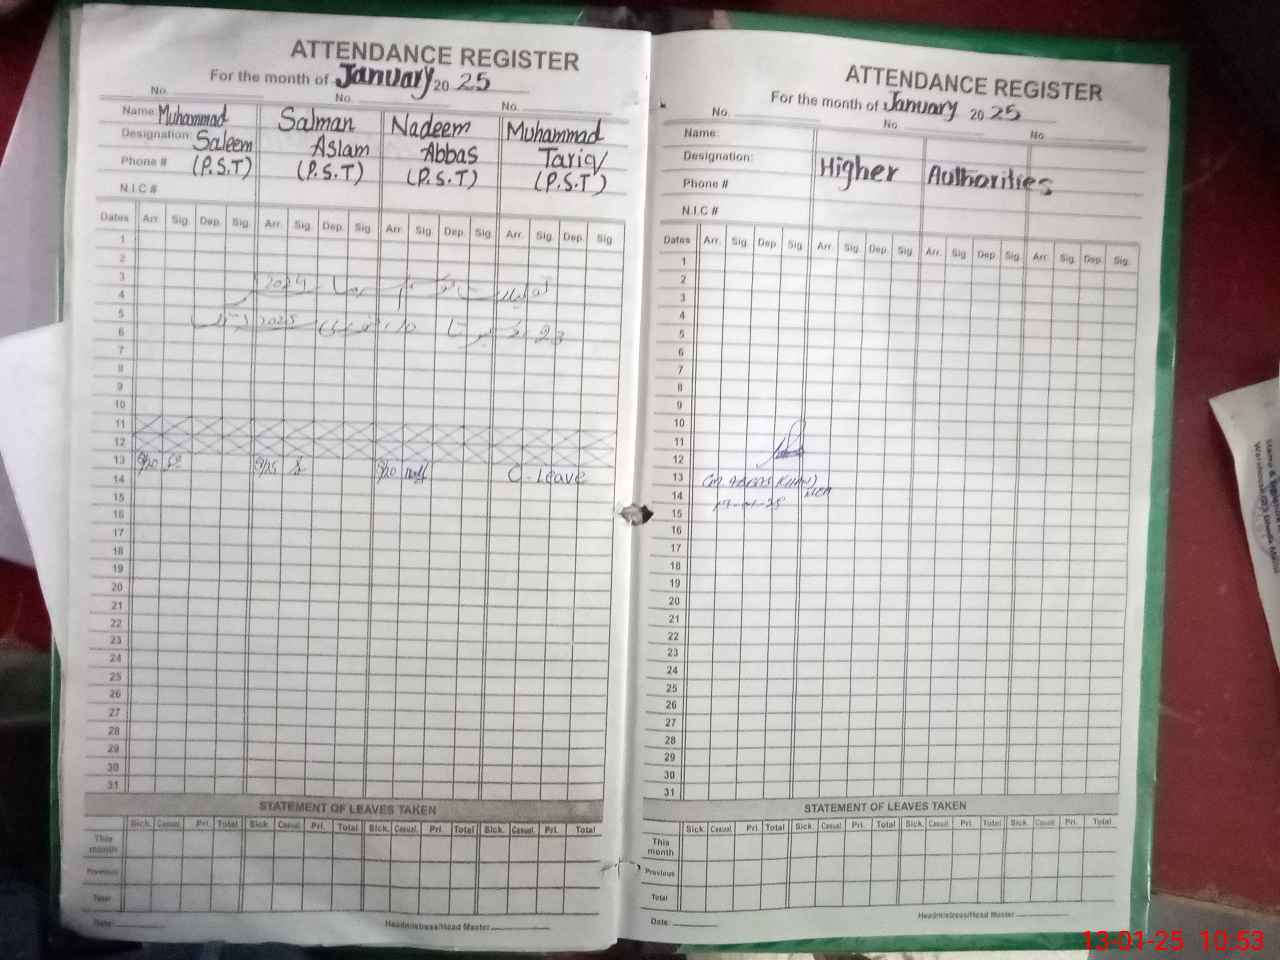 ATTENDANCE REGISTER
For the month of January 2025
No. No. No.
Name: Muhammad Saleem Salman Aslam Nadeem Abbas Muhammad Tariq
Designation:
Phone # (P.S.T) (P.S.T) (P.S.T) (P.S.T)
N.I.C #
Dates Arr. Sig. Dep. Sig. Arr. Sig. Dep. Sig. Arr. Sig. Dep. Sig. Arr. Sig. Dep. Sig
1
2
3
4
5
6
7
8
9
10
11
12
13 C. Leave
14
15
16
17
18
19
20
21
22
23
24
25
26
27
28
29
30
31
STATEMENT OF LEAVES TAKEN
Sick. Casual. Pri. Total Sick. Casual. Pri. Total Sick. Casual. Pri. Total Sick. Casual. Pri. Total
This month
Previous
Total
Date:
Headmistress/Head Master
ATTENDANCE REGISTER
For the month of January 2025
No. No No
Name:
Designation: Higher Authorities
Phone #
N.I.C #
Dates Arr. Sig. Dep. Sig. Arr. Sig. Dep. Sig. Arr. Sig Dep Sig. Arr. Sig. Dep. Sig.
1
2
3
4
5
6
7
8
9
10
11
12
13
14
15
16
17
18
19
20
21
22
23
24
25
26
27
28
29
30
31
STATEMENT OF LEAVES TAKEN
Sick. Casual. Pri. Total Sick. Casual. Pri. Total Sick. Casual. Pri. Total Sick. Casual. Pri. Total
This month
Previous
Total
Date:
Headmistress/Head Master
13-01-25 10:53